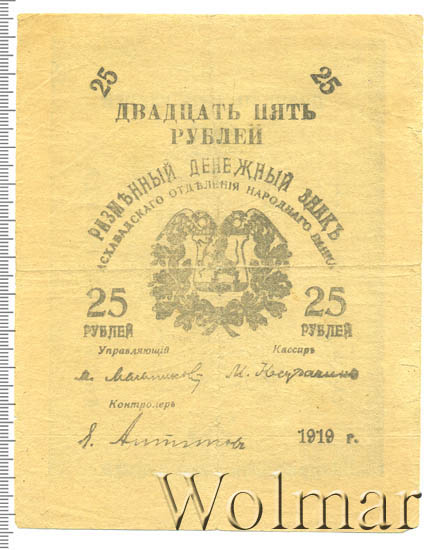 25 25
ДВАДЦАТЬ ПЯТЬ
РУБЛЕЙ
РАЗМѢННЫЙ ДЕНЕЖНЫЙ ЗНАКЪ
АСХАБАДСКАГО ОТДѢЛЕНІЯ НАРОДНАГО БАНКА
25 25
РУБЛЕЙ РУБЛЕЙ
Управляющій Кассиръ
М. Мельников М.
Контролеръ
1919 г.
Wolmar